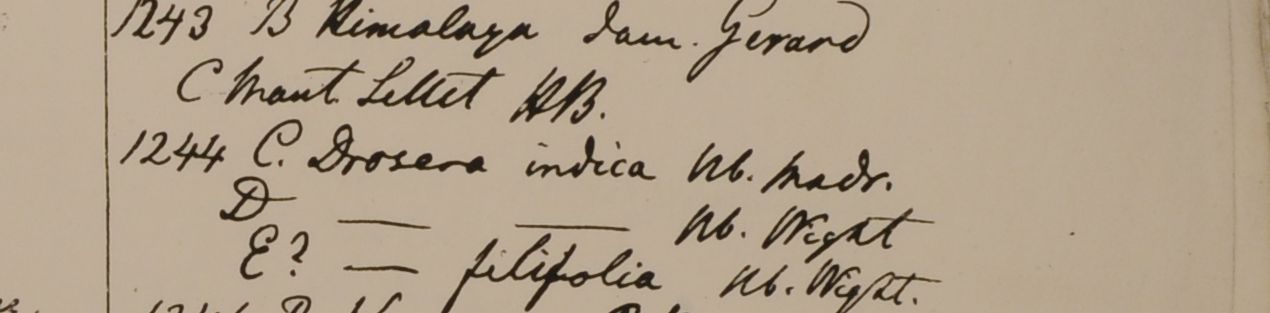 1243 B Himalaya dom. Gerard
C Mont. Sillet HB.
1244 C. Drosera indica Hb. Madr.
D — — Hb. Wight
E? — filifolia Hb. Wight.